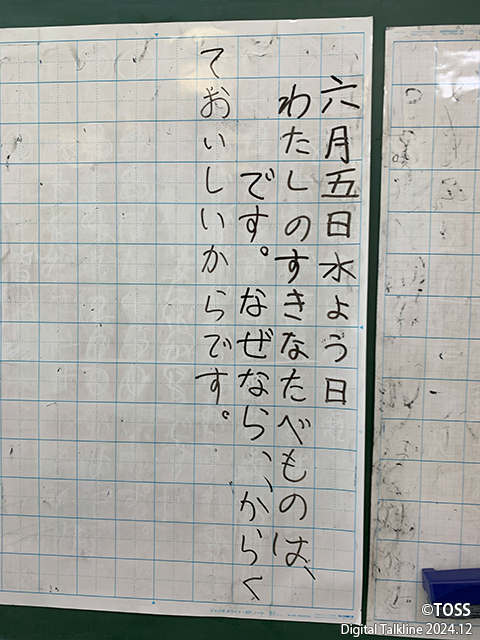 六月五日水よう日
わたしのすきなたべものは、
です。なぜなら、、からく
ておいしいからです。
©TOSS
Digital Talkline 2024.12